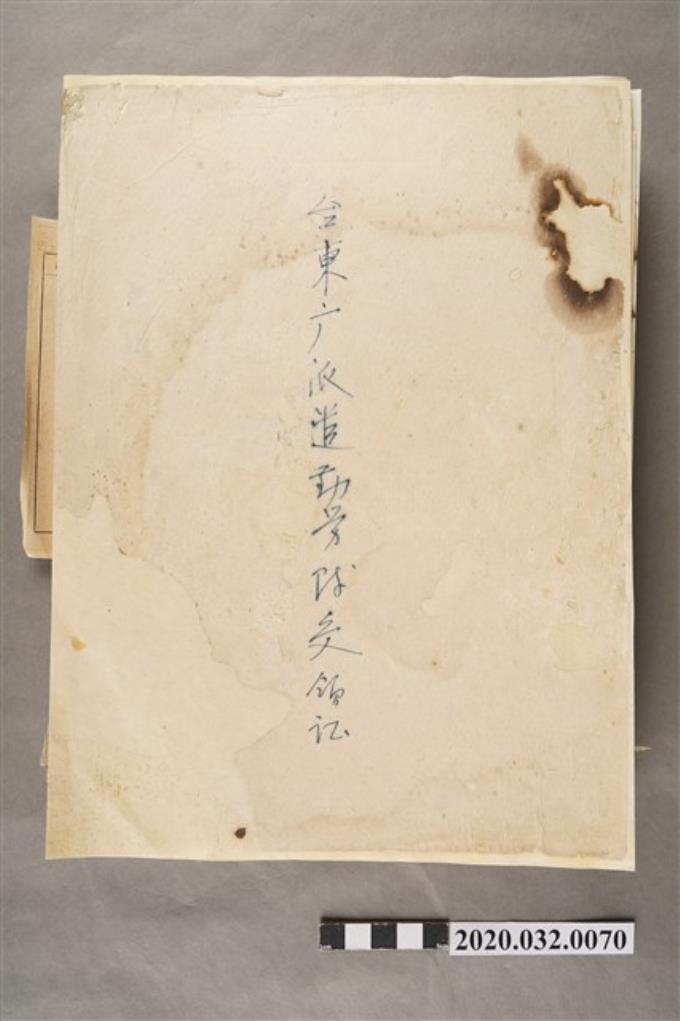 台東庁派遣勤労隊受領証
2020.032.0070